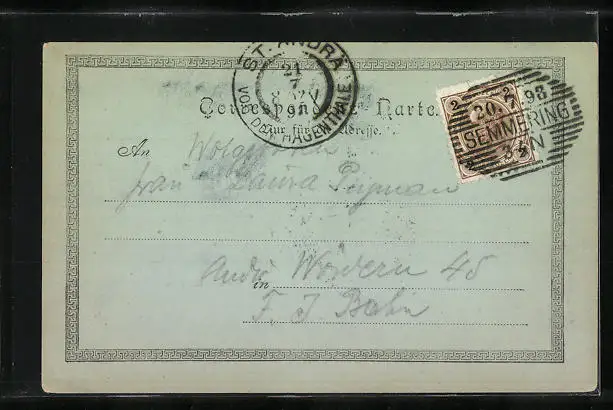 ST. ANDRÄ
21
7
VOR DEM HAGENTHALE
2 2
20. 7. 98
SEMMERING
Correspondenz-Karte.
Nur für die Adresse.
An
Frau Laura
Andrä Wördern 45
in
F. J. Bahn